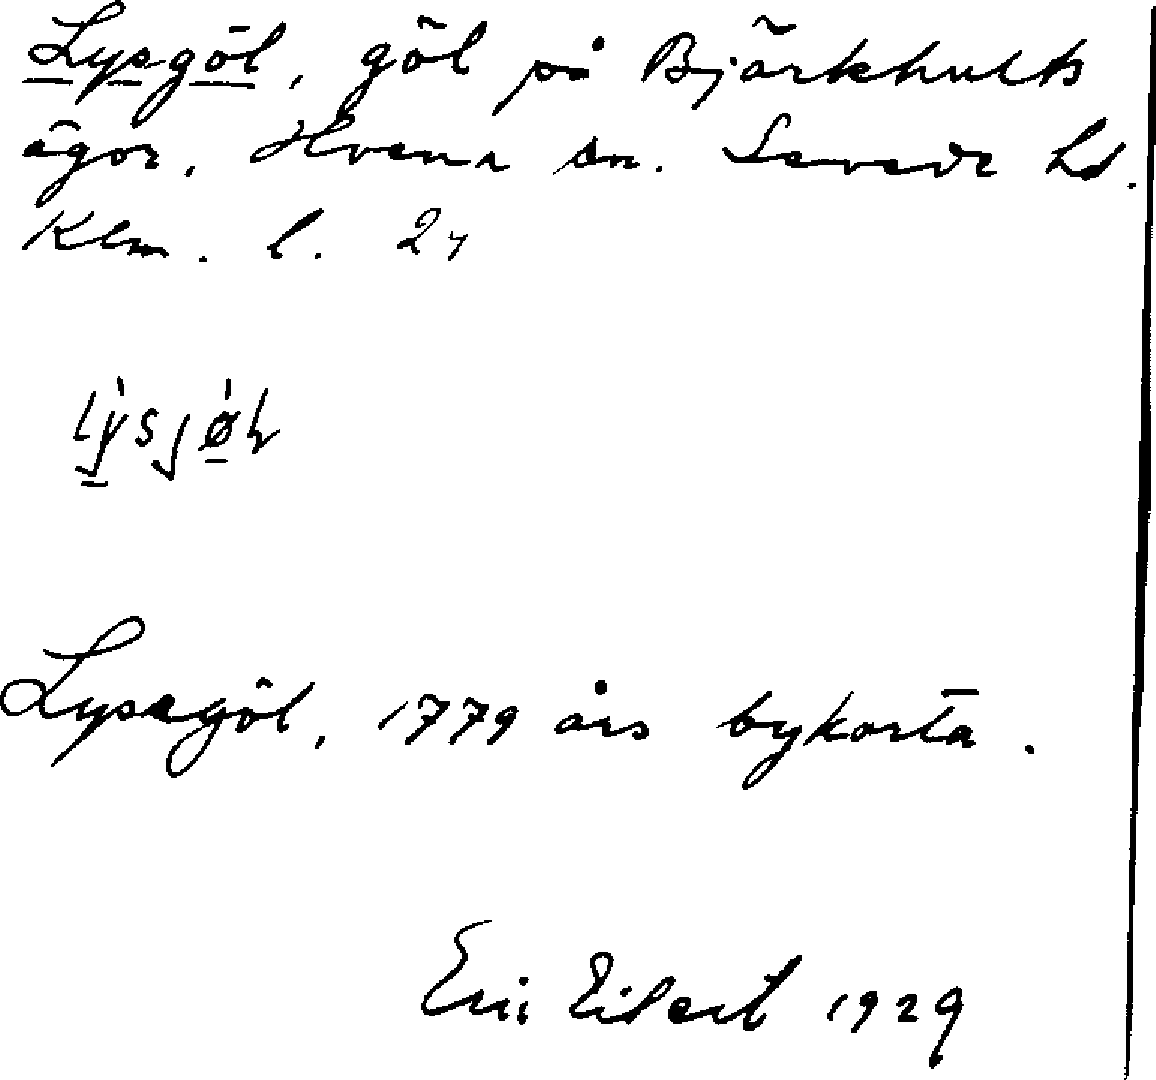 Lysgöl, göl på Björkhults
ägor, Hvena sn. Sevede hd.
Klm. l. 24
Lysegöl, 1779 års bykarta.
Eric Eilert 1929